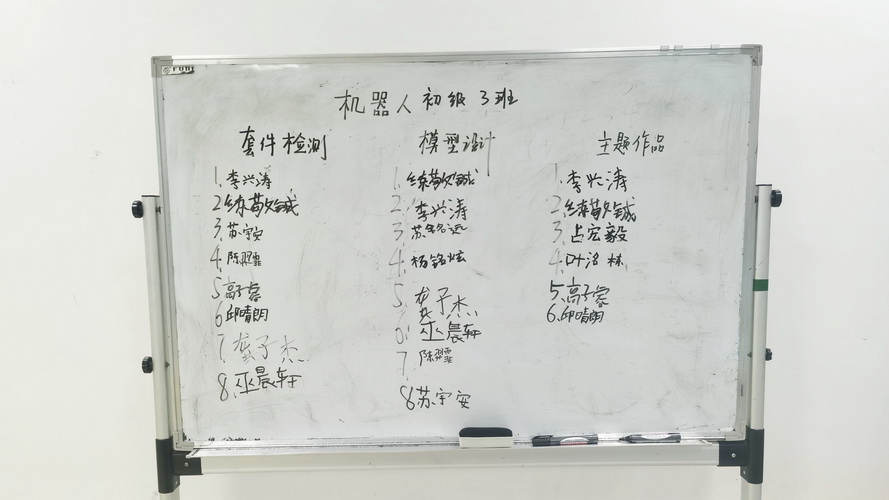 机器人初级3班
套件检测
1.李兴涛
2.练
3.苏宇安
4.陈
5.高子睿
6.邱晴朗
7.龚子杰
8.巫晨轩
模型设计
1.练
2.李兴涛
3.苏铭远
4.杨铭炫
5.龚子杰
6.巫晨轩
7.陈
8.苏宇安
主题作品
1.李兴涛
2.练
3.占宏毅
4.叶洛林
5.高子睿
6.邱晴朗